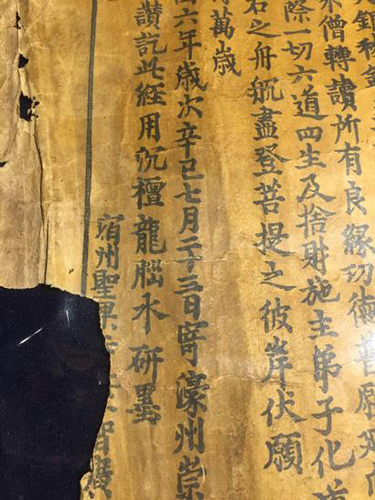 僧轉讀所有良緣功德普願
際一切六道四生及捨財施主弟子化
若之舟航盡登菩提之彼岸伏願
萬歳
六年歳次辛巳七月二十三日寄濠州崇
讚記此經用沉檀龍腦水研墨
宿州聖